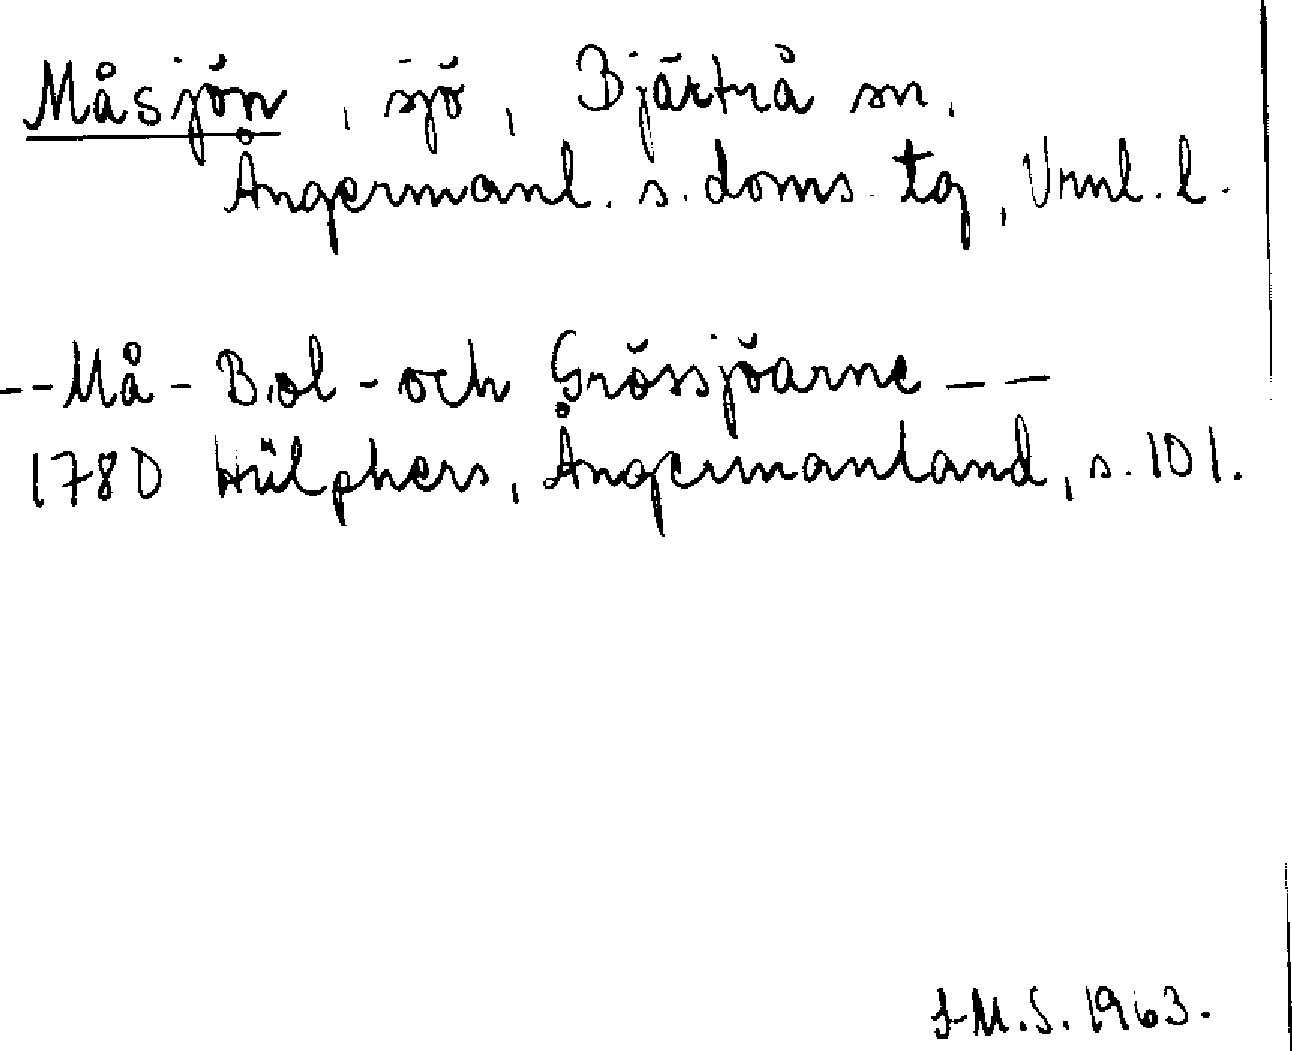 Måsjön, sjö, Bjärtrå sn.
Ångermanl. s. doms. tg, Vrnl. l.
-- Må - Bol - och Grössjöarne --
1780 Hülphers, Ångermanland, s. 101.
J-M.S. 1963.